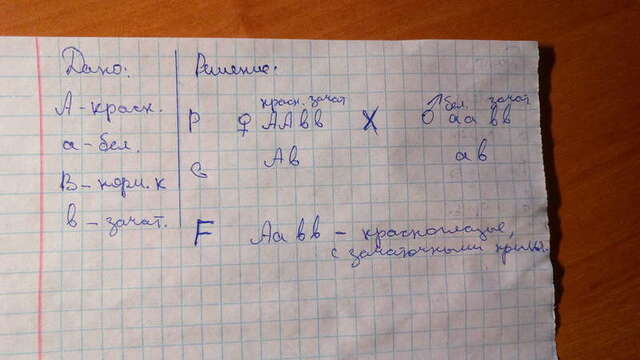 Дано:
А - красн.
а - бел.
В - норм. к
в - зачат.
Решение:
красн. зачат
P ♀ ААвв X ♂ аавв
бел. зачат
G Ав ав
F Аавв - красноглазые,
с зачаточными крылья.